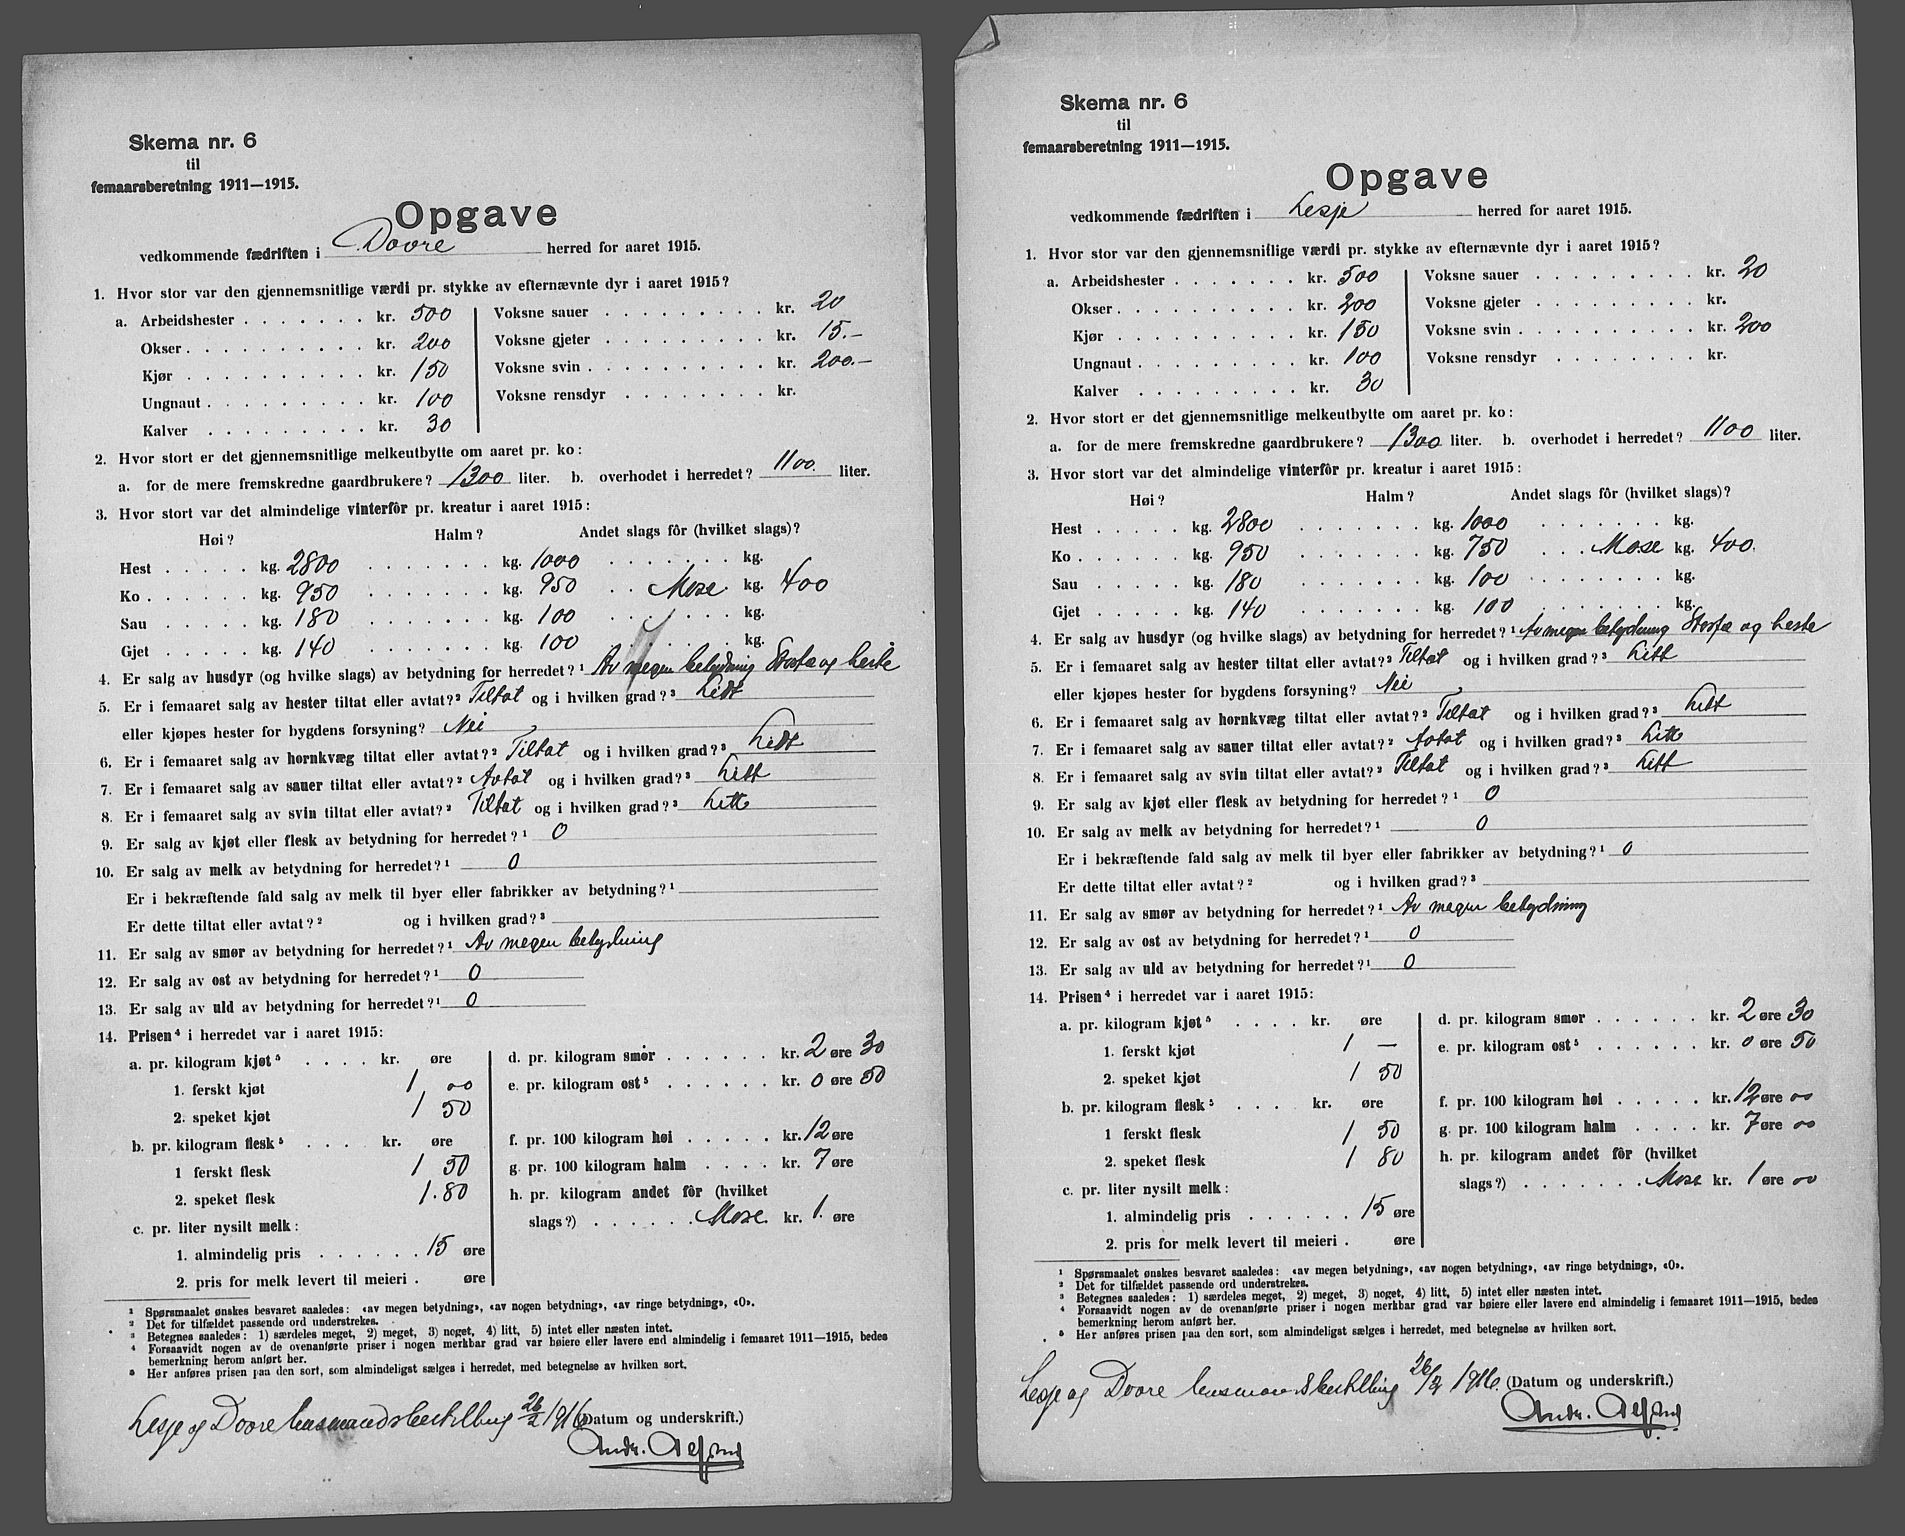 Skema nr. 6
til
femaarsberetning 1911—1915.
Opgave
vedkommende fædriften i Dovre herred for aaret 1915.
1. Hvor stor var den gjennemsnitlige værdi pr. stykke av efternævnte dyr i aaret 1915?
a. Arbeidshester . . . . . . . kr. 500
Okser . . . . . . . . . . kr. 200
Kjør . . . . . . . . . . kr. 150
Ungnaut . . . . . . . . . kr. 100
Kalver . . . . . . . . . kr. 30
Voksne sauer . . . . . . . . . kr. 20
Voksne gjeter . . . . . . . . . kr. 15.–
Voksne svin . . . . . . . . . . kr. 200.–
Voksne rensdyr . . . . . . . . kr.
2. Hvor stort er det gjennemsnitlige melkeutbytte om aaret pr. ko:
a. for de mere fremskredne gaardbrukere? 1300 liter. b. overhodet i herredet? 1100. liter.
3. Hvor stort var det almindelige vinterfôr pr. kreatur i aaret 1915:
Høi? Halm? Andet slags fôr (hvilket slags)?
Hest . . . . . kg. 2800 . . . . . . . kg. 1000 . . . . . . . kg.
Ko . . . . . . kg. 950 . . . . . . . kg. 950 . . Mose kg. 400
Sau . . . . . kg. 180 . . . . . . . kg. 100 . . . . . . . kg.
Gjet . . . . . kg. 140 . . . . . . . kg. 100 . . . . . . . kg.
4. Er salg av husdyr (og hvilke slags) av betydning for herredet?¹ Av megen betydning Storfæ og heste
5. Er i femaaret salg av hester tiltat eller avtat?² Tiltat og i hvilken grad?³ Lidt
eller kjøpes hester for bygdens forsyning? Nei
6. Er i femaaret salg av hornkvæg tiltat eller avtat?² Tiltat og i hvilken grad?³ Lidt
7. Er i femaaret salg av sauer tiltat eller avtat?² Avtat og i hvilken grad?³ Litt
8. Er i femaaret salg av svin tiltat eller avtat?² Tiltat og i hvilken grad?³ Litt
9. Er salg av kjøt eller flesk av betydning for herredet?¹ 0
10. Er salg av melk av betydning for herredet?¹ 0
Er i bekræftende fald salg av melk til byer eller fabrikker av betydning?¹
Er dette tiltat eller avtat?² og i hvilken grad?³
11. Er salg av smør av betydning for herredet?¹ Av megen betydning
12. Er salg av ost av betydning for herredet?¹ 0
13. Er salg av uld av betydning for herredet?¹ 0
14. Prisen⁴ i herredet var i aaret 1915:
a. pr. kilogram kjøt⁵ . . . . kr. øre
1. ferskt kjøt 1,00
2. speket kjøt 1 50
b. pr. kilogram flesk⁵ . . . . kr. øre
1 ferskt flesk 1 50
2. speket flesk 1.80
c. pr. liter nysilt melk:
1. almindelig pris . . . . . . 15 øre
2. pris for melk levert til meieri . øre
d. pr. kilogram smør . . . . . . kr. 2 øre 30
e. pr. kilogram ost⁵ . . . . . . kr. 0 øre 50
f. pr. 100 kilogram høi . . . . . kr. 12 øre
g. pr. 100 kilogram halm . . . . kr. 7 øre
h. pr. kilogram andet fôr (hvilket
slags?) . . . . . . Mose. kr. 1. øre
¹ Spørsmaalet ønskes besvaret saaledes: «av megen betydning», «av nogen betydning», «av ringe betydning», «0».
² Det for tilfældet passende ord understrekes.
³ Betegnes saaledes: 1) særdeles meget, 2) meget, 3) noget, 4) litt, 5) intet eller næsten intet.
⁴ Forsaavidt nogen av de ovenanførte priser i nogen merkbar grad var høiere eller lavere end almindelig i femaaret 1911—1915, bedes
bemerkning herom anført her.
⁵ Her anføres prisen paa den sort, som almindeligst sælges i herredet, med betegnelse av hvilken sort.
Lesje og Dovre lensmandsbestilling 26/2 1916 (Datum og underskrift.)
Skema nr. 6
til
femaarsberetning 1911—1915.
Opgave
vedkommende fædriften i Lesje herred for aaret 1915.
1. Hvor stor var den gjennemsnitlige værdi pr. stykke av efternævnte dyr i aaret 1915?
a. Arbeidshester . . . . . . . kr. 500
Okser . . . . . . . . . . kr. 200
Kjør . . . . . . . . . . kr. 150
Ungnaut . . . . . . . . . kr. 100
Kalver . . . . . . . . . kr. 30
Voksne sauer . . . . . . . . . kr. 20
Voksne gjeter . . . . . . . . . kr.
Voksne svin . . . . . . . . . . kr. 200
Voksne rensdyr . . . . . . . . kr.
2. Hvor stort er det gjennemsnitlige melkeutbytte om aaret pr. ko:
a. for de mere fremskredne gaardbrukere? 1300 liter. b. overhodet i herredet? 1100 liter.
3. Hvor stort var det almindelige vinterfôr pr. kreatur i aaret 1915:
Høi? Halm? Andet slags fôr (hvilket slags)?
Hest . . . . . kg. 2800 . . . . . . . kg. 1000 . . . . . . . kg.
Ko . . . . . . kg. 950 . . . . . . . kg. 750 . . . Mose kg. 400.
Sau . . . . . kg. 180 . . . . . . . kg. 100 . . . . . . . kg.
Gjet . . . . . kg. 140 . . . . . . . kg. 100 . . . . . . . kg.
4. Er salg av husdyr (og hvilke slags) av betydning for herredet?¹ Av megen betydning Storfæ og heste
5. Er i femaaret salg av hester tiltat eller avtat?² Tiltat og i hvilken grad?³ Litt
eller kjøpes hester for bygdens forsyning? Nei
6. Er i femaaret salg av hornkvæg tiltat eller avtat?² Tiltat og i hvilken grad?³ Litt
7. Er i femaaret salg av sauer tiltat eller avtat?² Avtat og i hvilken grad?³ Litt
8. Er i femaaret salg av svin tiltat eller avtat?² Tiltat og i hvilken grad?³ Litt
9. Er salg av kjøt eller flesk av betydning for herredet?¹ 0
10. Er salg av melk av betydning for herredet?¹ 0
Er i bekræftende fald salg av melk til byer eller fabrikker av betydning?¹ 0
Er dette tiltat eller avtat?² og i hvilken grad?³
11. Er salg av smør av betydning for herredet?¹ Av megen betydning
12. Er salg av ost av betydning for herredet?¹ 0
13. Er salg av uld av betydning for herredet?¹ 0
14. Prisen⁴ i herredet var i aaret 1915:
a. pr. kilogram kjøt⁵ . . . . kr. øre
1. ferskt kjøt 1 —
2. speket kjøt 1 50
b. pr. kilogram flesk⁵ . . . kr. øre
1 ferskt flesk 1 50
2. speket flesk 1 80
c. pr. liter nysilt melk:
1. almindelig pris . . . . . . 15 øre
2. pris for melk levert til meieri . øre
d. pr. kilogram smør . . . . . . kr. 2 øre 30
e. pr. kilogram ost⁵ . . . . . . kr. 0 øre 50
f. pr. 100 kilogram høi . . . . . kr. 12 øre 00
g. pr. 100 kilogram halm . . . . kr. 7 øre 00
h. pr. kilogram andet fôr (hvilket
slags?) . . . . . . . Mose kr. 1 øre 00
¹ Spørsmaalet ønskes besvaret saaledes: «av megen betydning», «av nogen betydning», «av ringe betydning», «0».
² Det for tilfældet passende ord understrekes.
³ Betegnes saaledes: 1) særdeles meget, 2) meget, 3) noget, 4) litt, 5) intet eller næsten intet.
⁴ Forsaavidt nogen av de ovenanførte priser i nogen merkbar grad var høiere eller lavere end almindelig i femaaret 1911—1915, bedes
bemerkning herom anført her.
⁵ Her anføres prisen paa den sort, som almindeligst sælges i herredet, med betegnelse av hvilken sort.
Lesje og Dovre lensmandsbestilling 26/2 1916. (Datum og underskrift.)